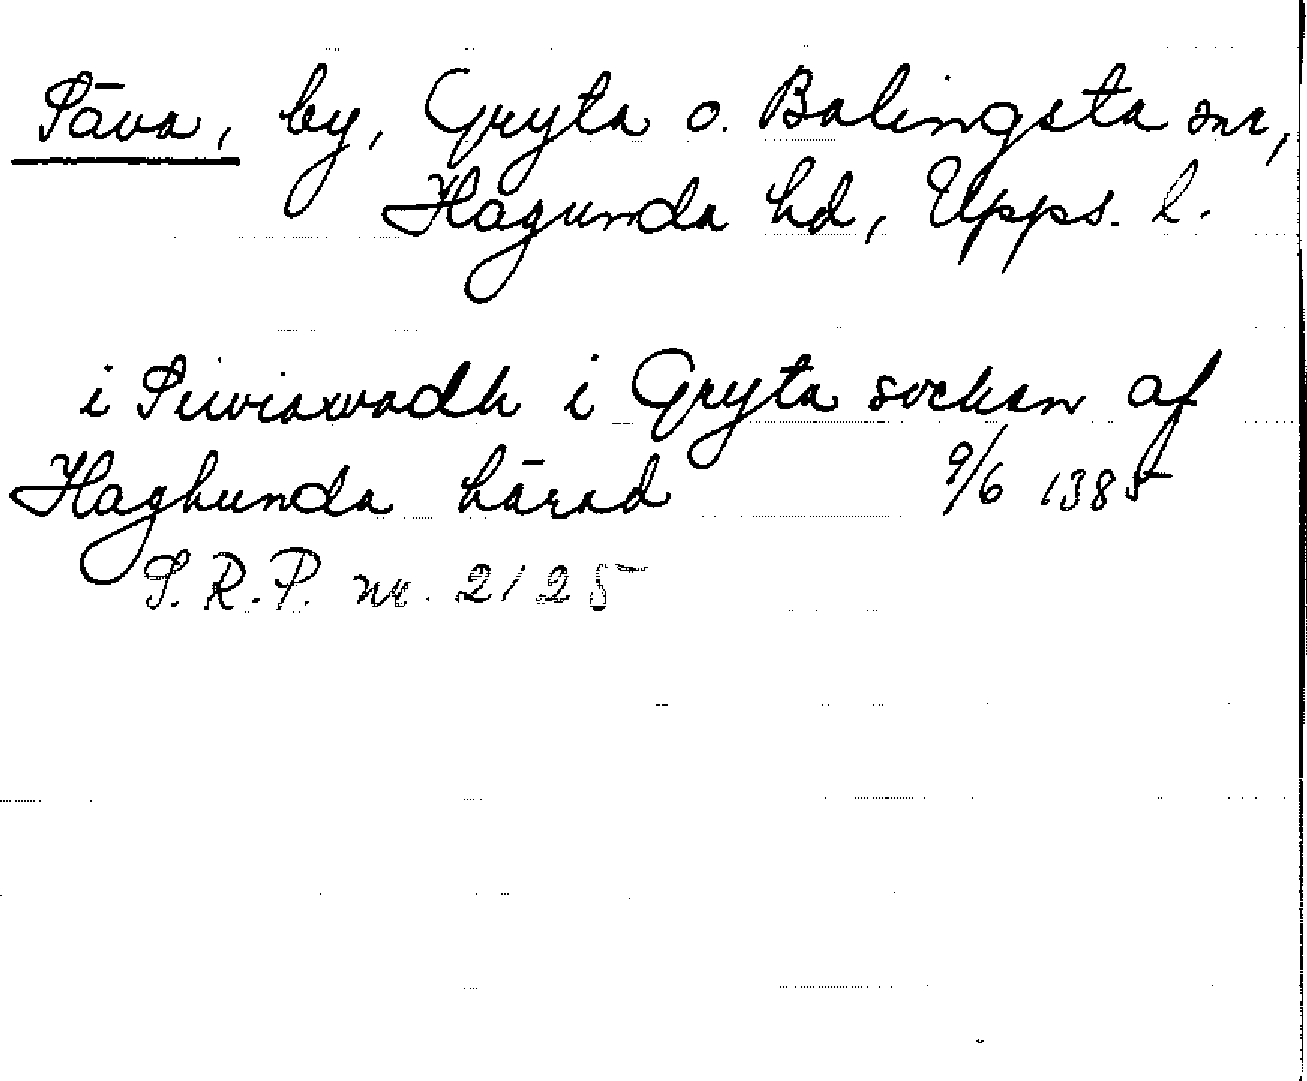 Säva, by, Gryta o. Balingsta snr,
Hagunda hd, Upps. l.
i Siwiawadh i Gryta sockan af
Haghunda härad 9/6 1385
S. R. P. nr. 2125